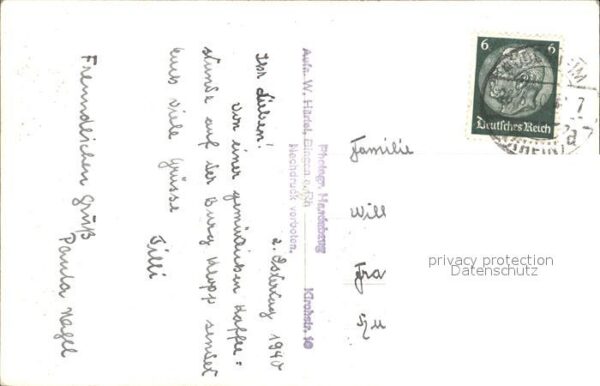 2. Ostertag 1940
Ihr Lieben!
Von einer gemütlichen Kaffee=
stunde auf der Burg Klopp sendet
Euch viele Grüsse
Tilli
Freundlichen Gruß
Paula Nagel
Photogr. Handabzug
Aufn. W. Hartel, Bingen a. Rh. Kirchstr. 10
Nachdruck verboten.
Familie
Will
Fra
6 6
Deutsches Reich
privacy protection
Datenschutz